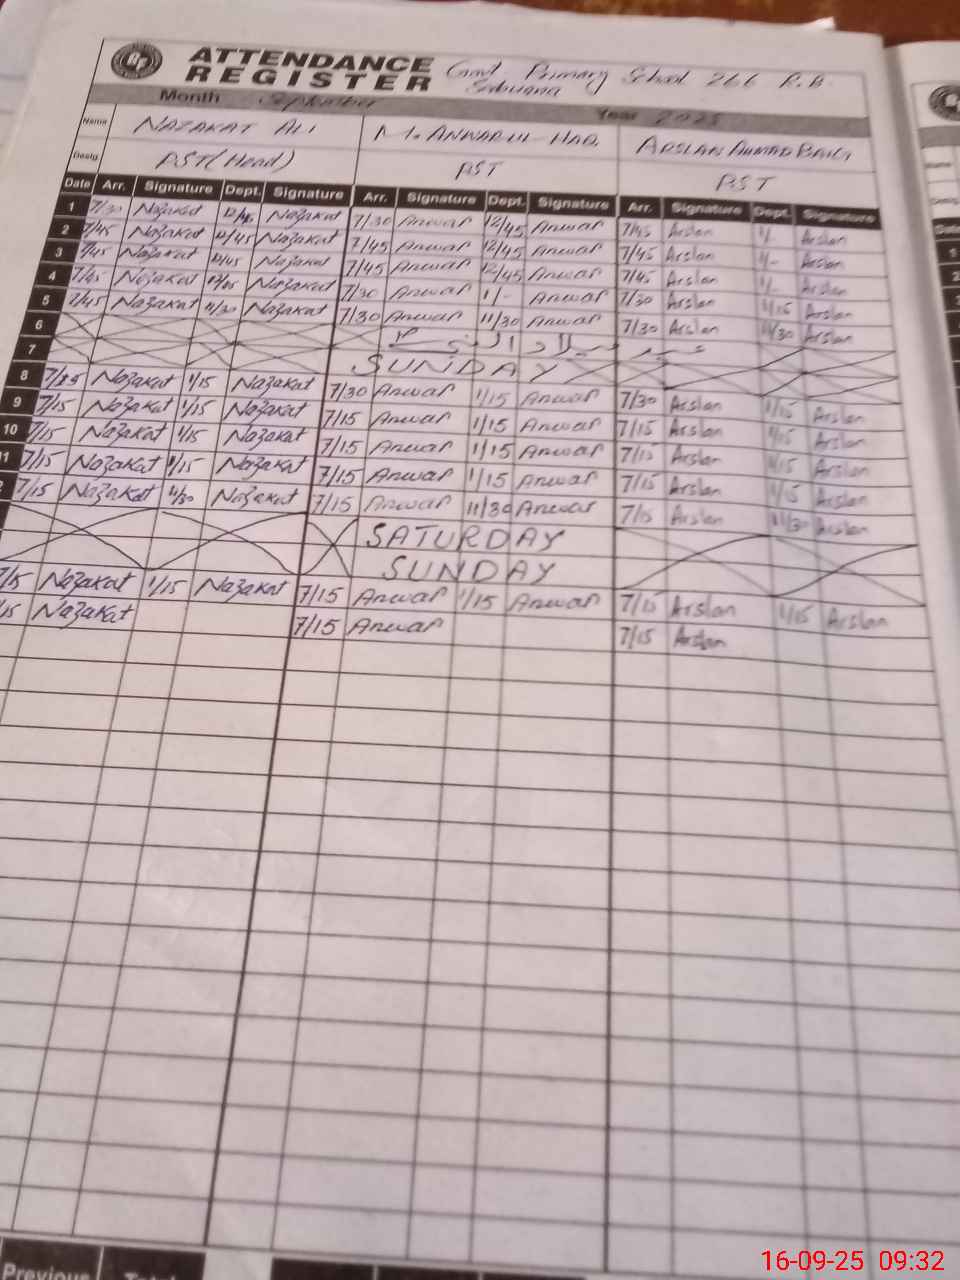 ATTENDANCE REGISTER Govt Primary School 266 R.B.
Month September Year 2025
Name NAZAKAT ALI M. ANWAR UL HAQ ARSLAN AHMAD BAIG
Desig. PST (Head) PST PST
Date Arr. Signature Dept. Signature Arr. Signature Dept. Signature Arr. Signature Dept. Signature
1 7/30 Nazakat 12/45 Nazakat 7/30 Anwar 12/45 Anwar 7/45 Arslan 1/- Arslan
2 7/45 Nazakat 12/45 Nazakat 7/45 Anwar 12/45 Anwar 7/45 Arslan 1/- Arslan
3 7/45 Nazakat 12/45 Nazakat 7/45 Anwar 12/45 Anwar 7/45 Arslan 1/- Arslan
4 7/45 Nazakat Nazakat 7/30 Anwar 1/- Anwar 7/30 Arslan 1/15 Arslan
5 7/45 Nazakat 11/30 Nazakat 7/30 Anwar 11/30 Anwar 7/30 Arslan 11/30 Arslan
6
7 SUNDAY
8 Nazakat 1/15 Nazakat 7/30 Anwar 1/15 Anwar 7/30 Arslan 1/15 Arslan
9 7/15 Nazakat 1/15 Nazakat 7/15 Anwar 1/15 Anwar 7/15 Arslan 1/15 Arslan
10 7/15 Nazakat 1/15 Nazakat 7/15 Anwar 1/15 Anwar 7/15 Arslan 1/15 Arslan
11 7/15 Nazakat 1/15 Nazakat 7/15 Anwar 1/15 Anwar 7/15 Arslan 1/15 Arslan
7/15 Nazakat 11/30 Nazakat 7/15 Anwar 11/30 Anwar 7/15 Arslan 11/30 Arslan
SATURDAY
SUNDAY
7/15 Nazakat 1/15 Nazakat 7/15 Anwar 1/15 Anwar 7/15 Arslan 1/15 Arslan
Nazakat 7/15 Anwar 7/15 Arslan
Previous
16-09-25 09:32